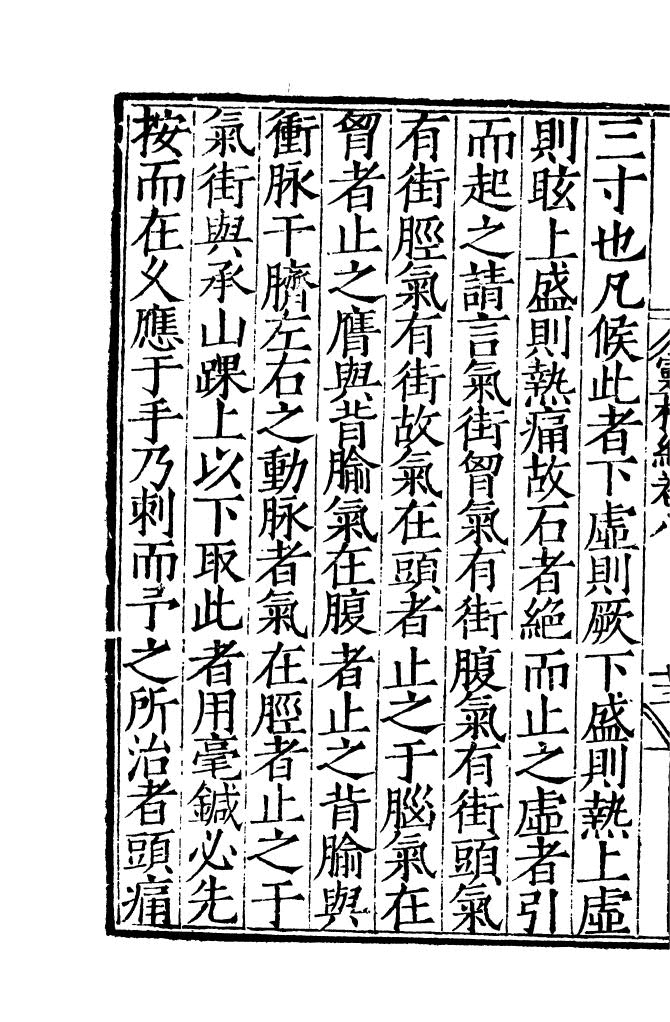 三寸也凡候此者下虛則厥下盛則熱上虛
則眩上盛則熱痛故石者絕而止之虛者引
而起之請言氣街胷氣有街腹氣有街頭氣
有街脛氣有街故氣在頭者止之于腦氣在
胷者止之膺與背腧氣在腹者止之背腧與
衝脉干臍左右之動脉者氣在脛者止之于
氣街與承山踝上以下取此者用毫鍼必先
按而在久應于手乃刺而予之所治者頭痛